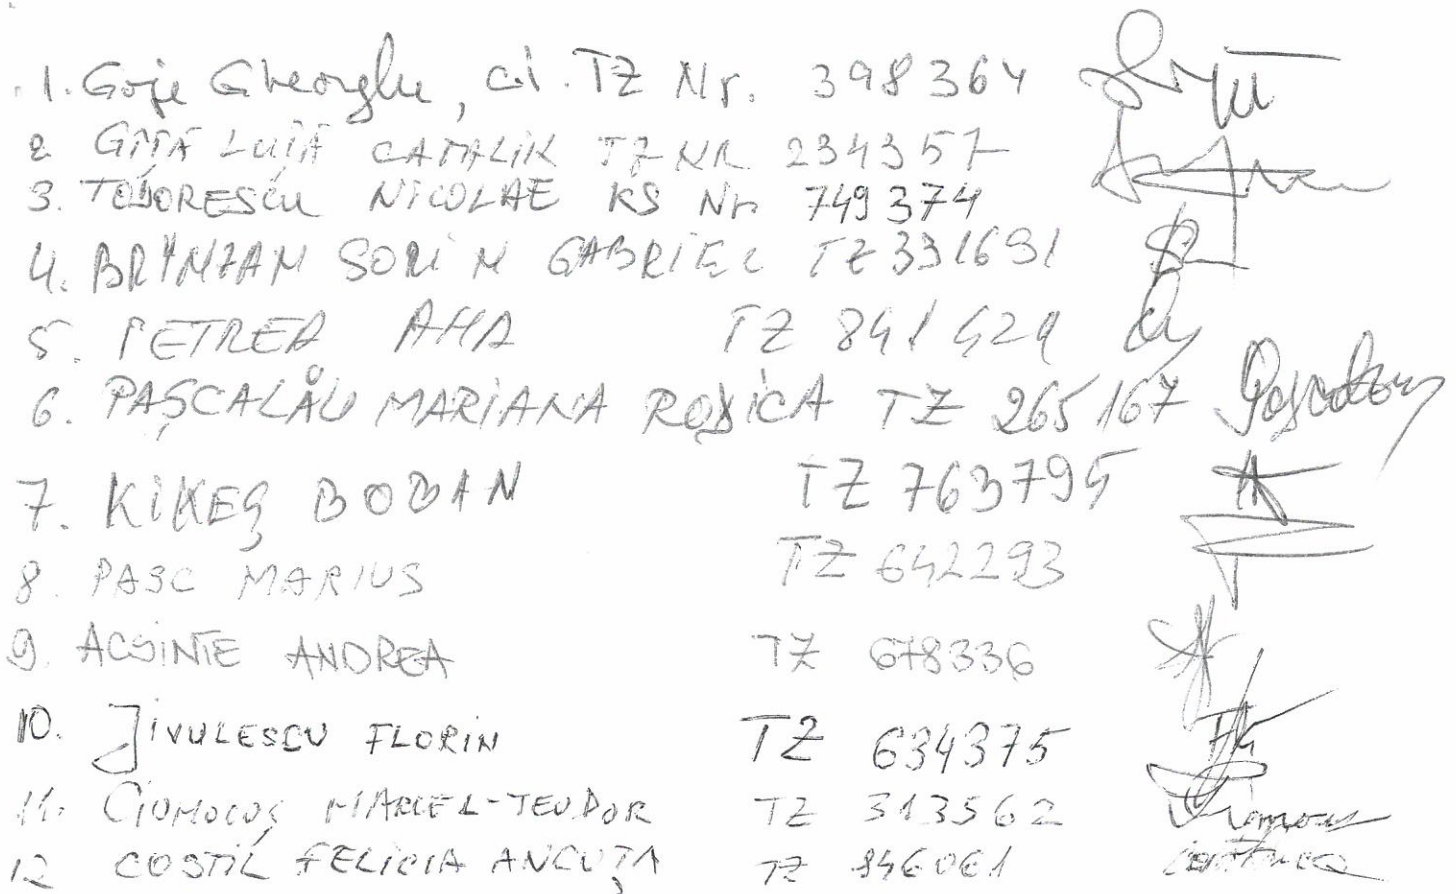 1. Goje Gheorghe, c.i. TZ Nr. 398364
2. GÎȚĂ LUIȚĂ CATALIN TZ NR 234357
3. TODORESCU NICOLAE KS Nr. 749374
4. BRÎNZAN SORIN GABRIEL TZ 331691
5. PETREA ANA TZ 841424
6. PAȘCALĂU MARIANA RODICA TZ 265167
7. KIKEȘ BOBAN TZ 763795
8. PASC MARIUS TZ 642293
9. ACSINTE ANDREA TZ 678336
10. JIVULESCU FLORIN TZ 634375
11. CIOMOCOȘ MARCEL-TEODOR TZ 313562
12 COSTIL FELICIA ANCUȚA TZ 846061